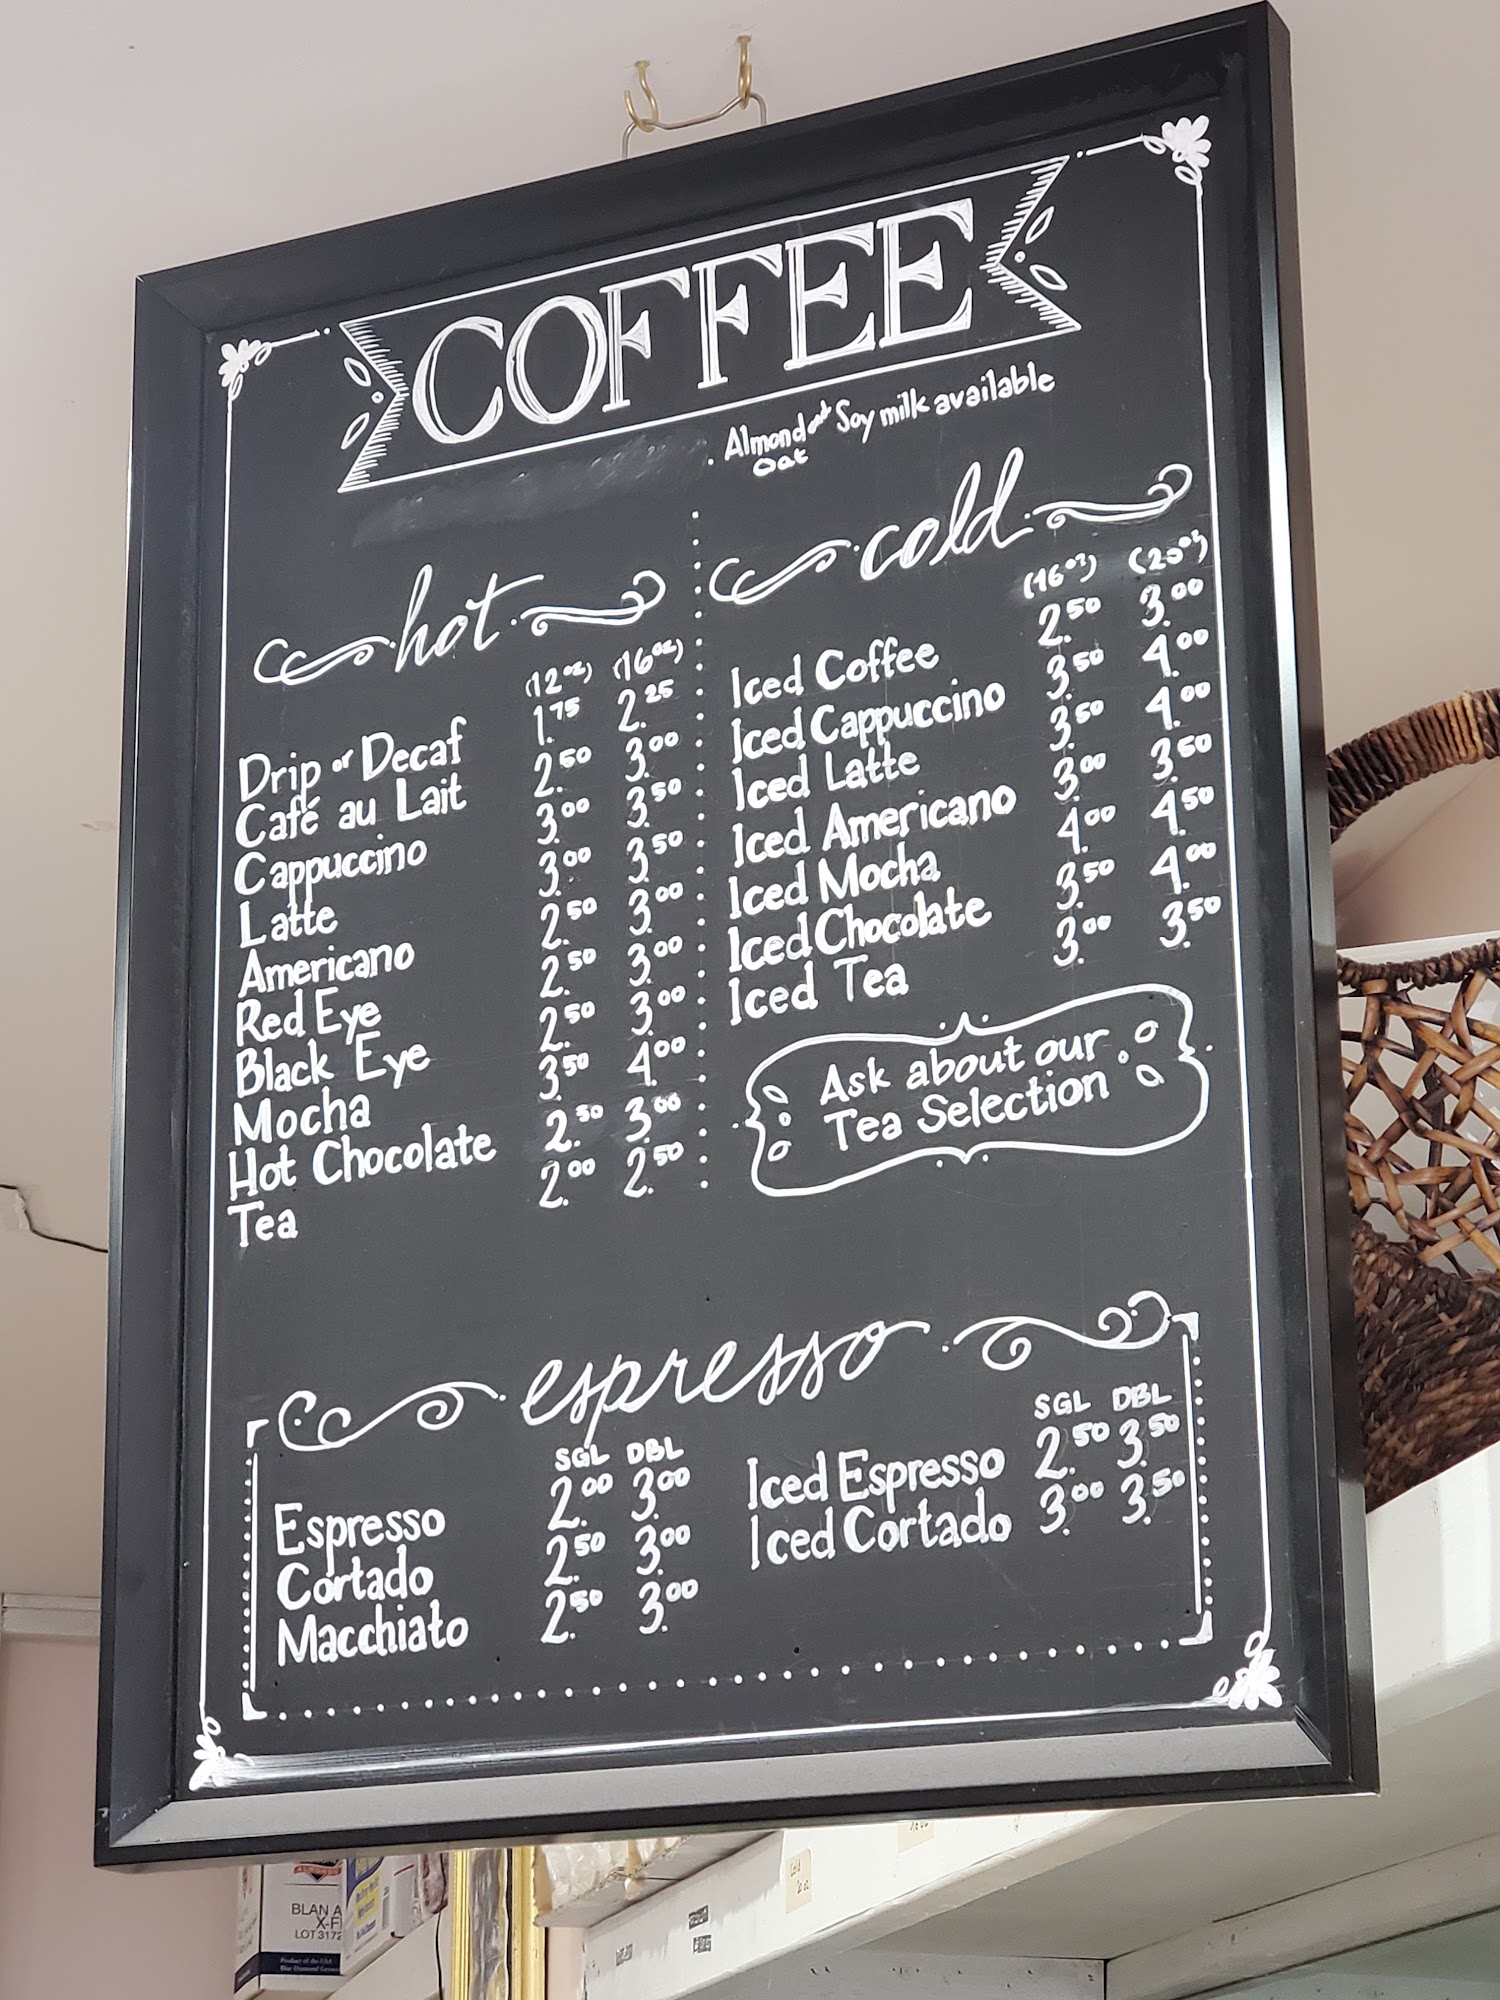 COFFEE
Almond and Soy milk available
Oat
hot
(12oz) (16oz)
Drip or Decaf 1.75 2.25
Café au Lait 2.50 3.00
Cappuccino 3.00 3.50
Latte 3.00 3.50
Americano 2.50 3.00
Red Eye 2.50 3.00
Black Eye 2.50 3.00
Mocha 3.50 4.00
Hot Chocolate 2.50 3.00
Tea 2.00 2.50
cold
(16oz) (20oz)
Iced Coffee 2.50 3.00
Iced Cappuccino 3.50 4.00
Iced Latte 3.50 4.00
Iced Americano 3.00 3.50
Iced Mocha 4.00 4.50
Iced Chocolate 3.50 4.00
Iced Tea 3.00 3.50
Ask about our
Tea Selection
espresso
SGL DBL
Espresso 2.00 3.00
Cortado 2.50 3.00
Macchiato 2.50 3.00
SGL DBL
Iced Espresso 2.50 3.50
Iced Cortado 3.00 3.50
BLAN A
X-F
LOT 3172
Product of the USA